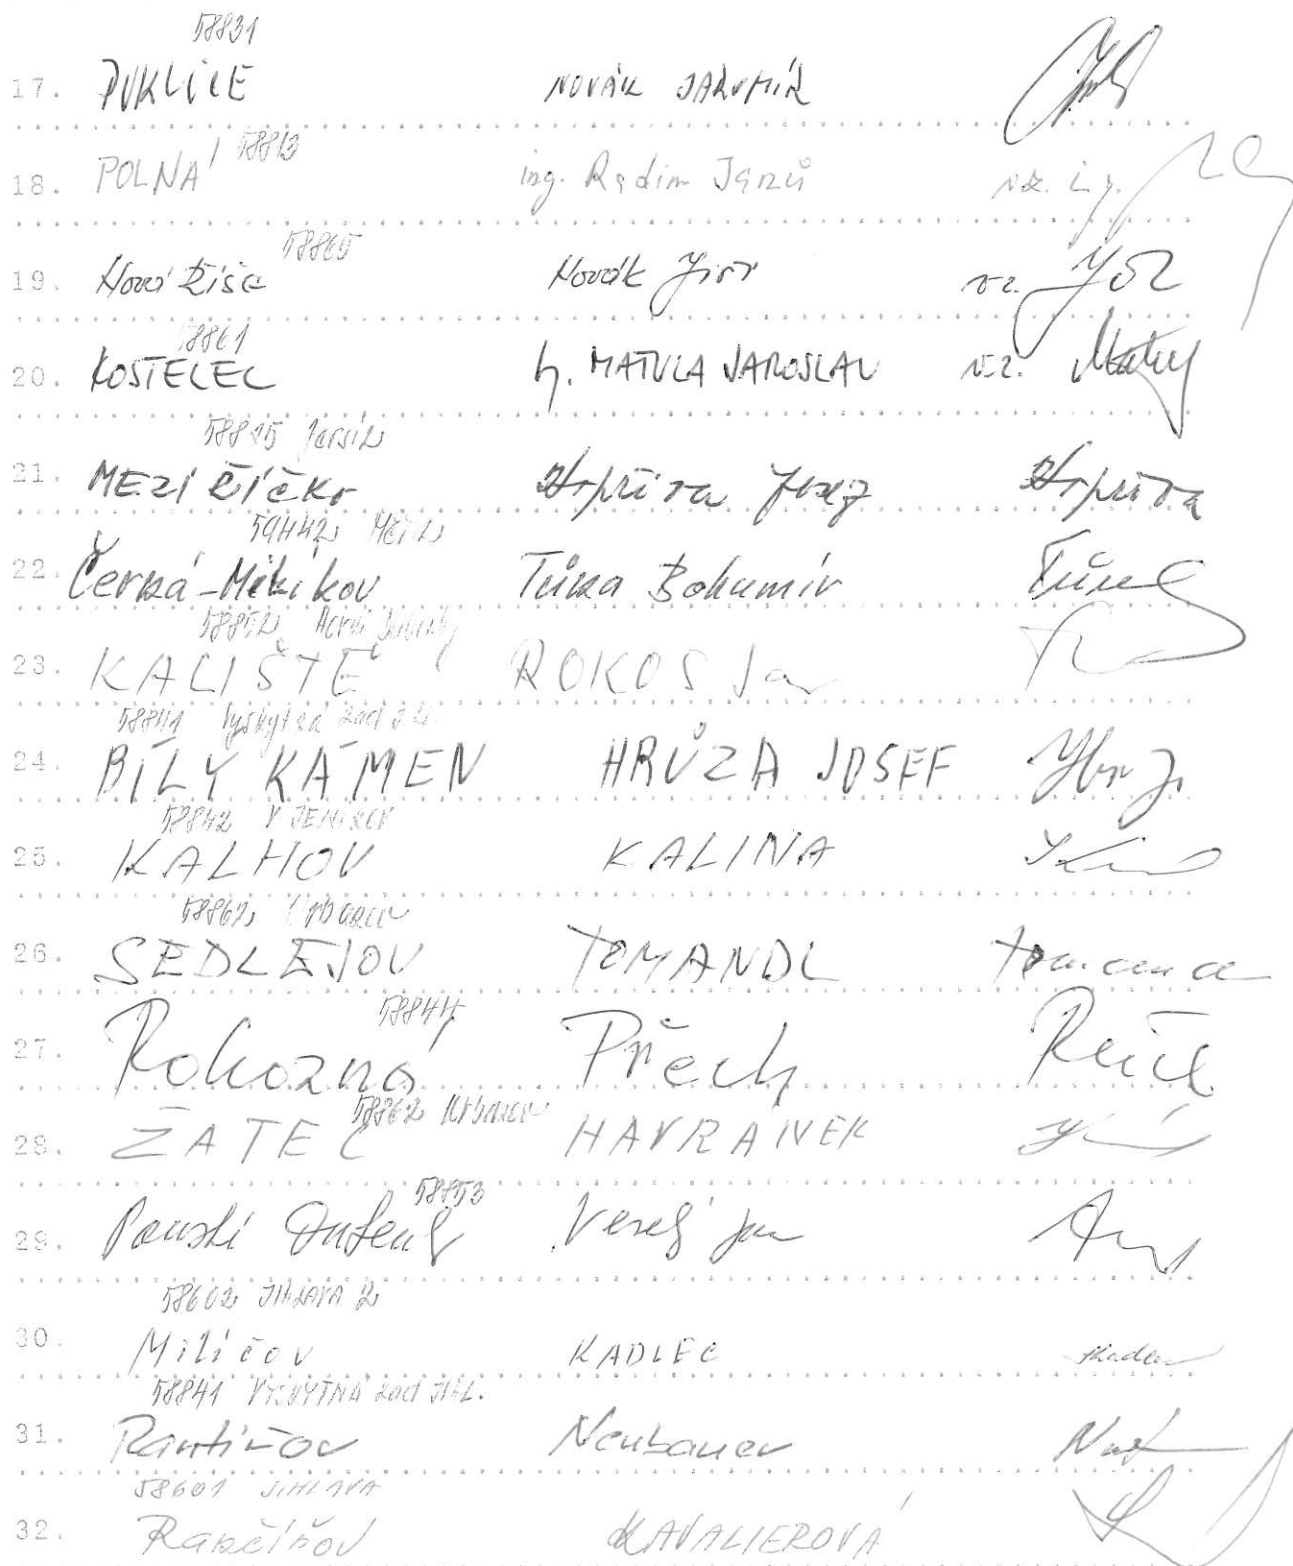 58831
17. PUKLICE NOVÁK JAROMÍR
58813
18. POLNÁ ing. Radim Janů v.z. ing.
58865
19. Nová Říše Novák Jiří v.z.
58861
20. KOSTELEC MATULA JAROSLAV v.z.
58825
21. MEZIŘÍČKO Josef
59442 Měřín
22. Černá-Milíkov Tůma Bohumír
58852
23. KALIŠTĚ ROKOS Jan
58841 Vyskytná nad Jihl.
24. BÍLÝ KÁMEN HRŮZA JOSEF
58842 VĚTRNÝ JENÍKOV
25. KALHOV KALINA
58862 Urbanov
26. SEDLEJOV TOMANDL
58844
27. Rohozná Přech
58862 Urbanov
28. ŽATEC HAVRANEK
58853
29. Panské Dubenky Veselý Jan
58602 JIHLAVA 2
30. Milíčov KADLEC
58841 VYSKYTNÁ nad JIHL.
31. Rantířov Neubauer
58601 JIHLAVA
32. Rančířov KAVALIEROVÁ